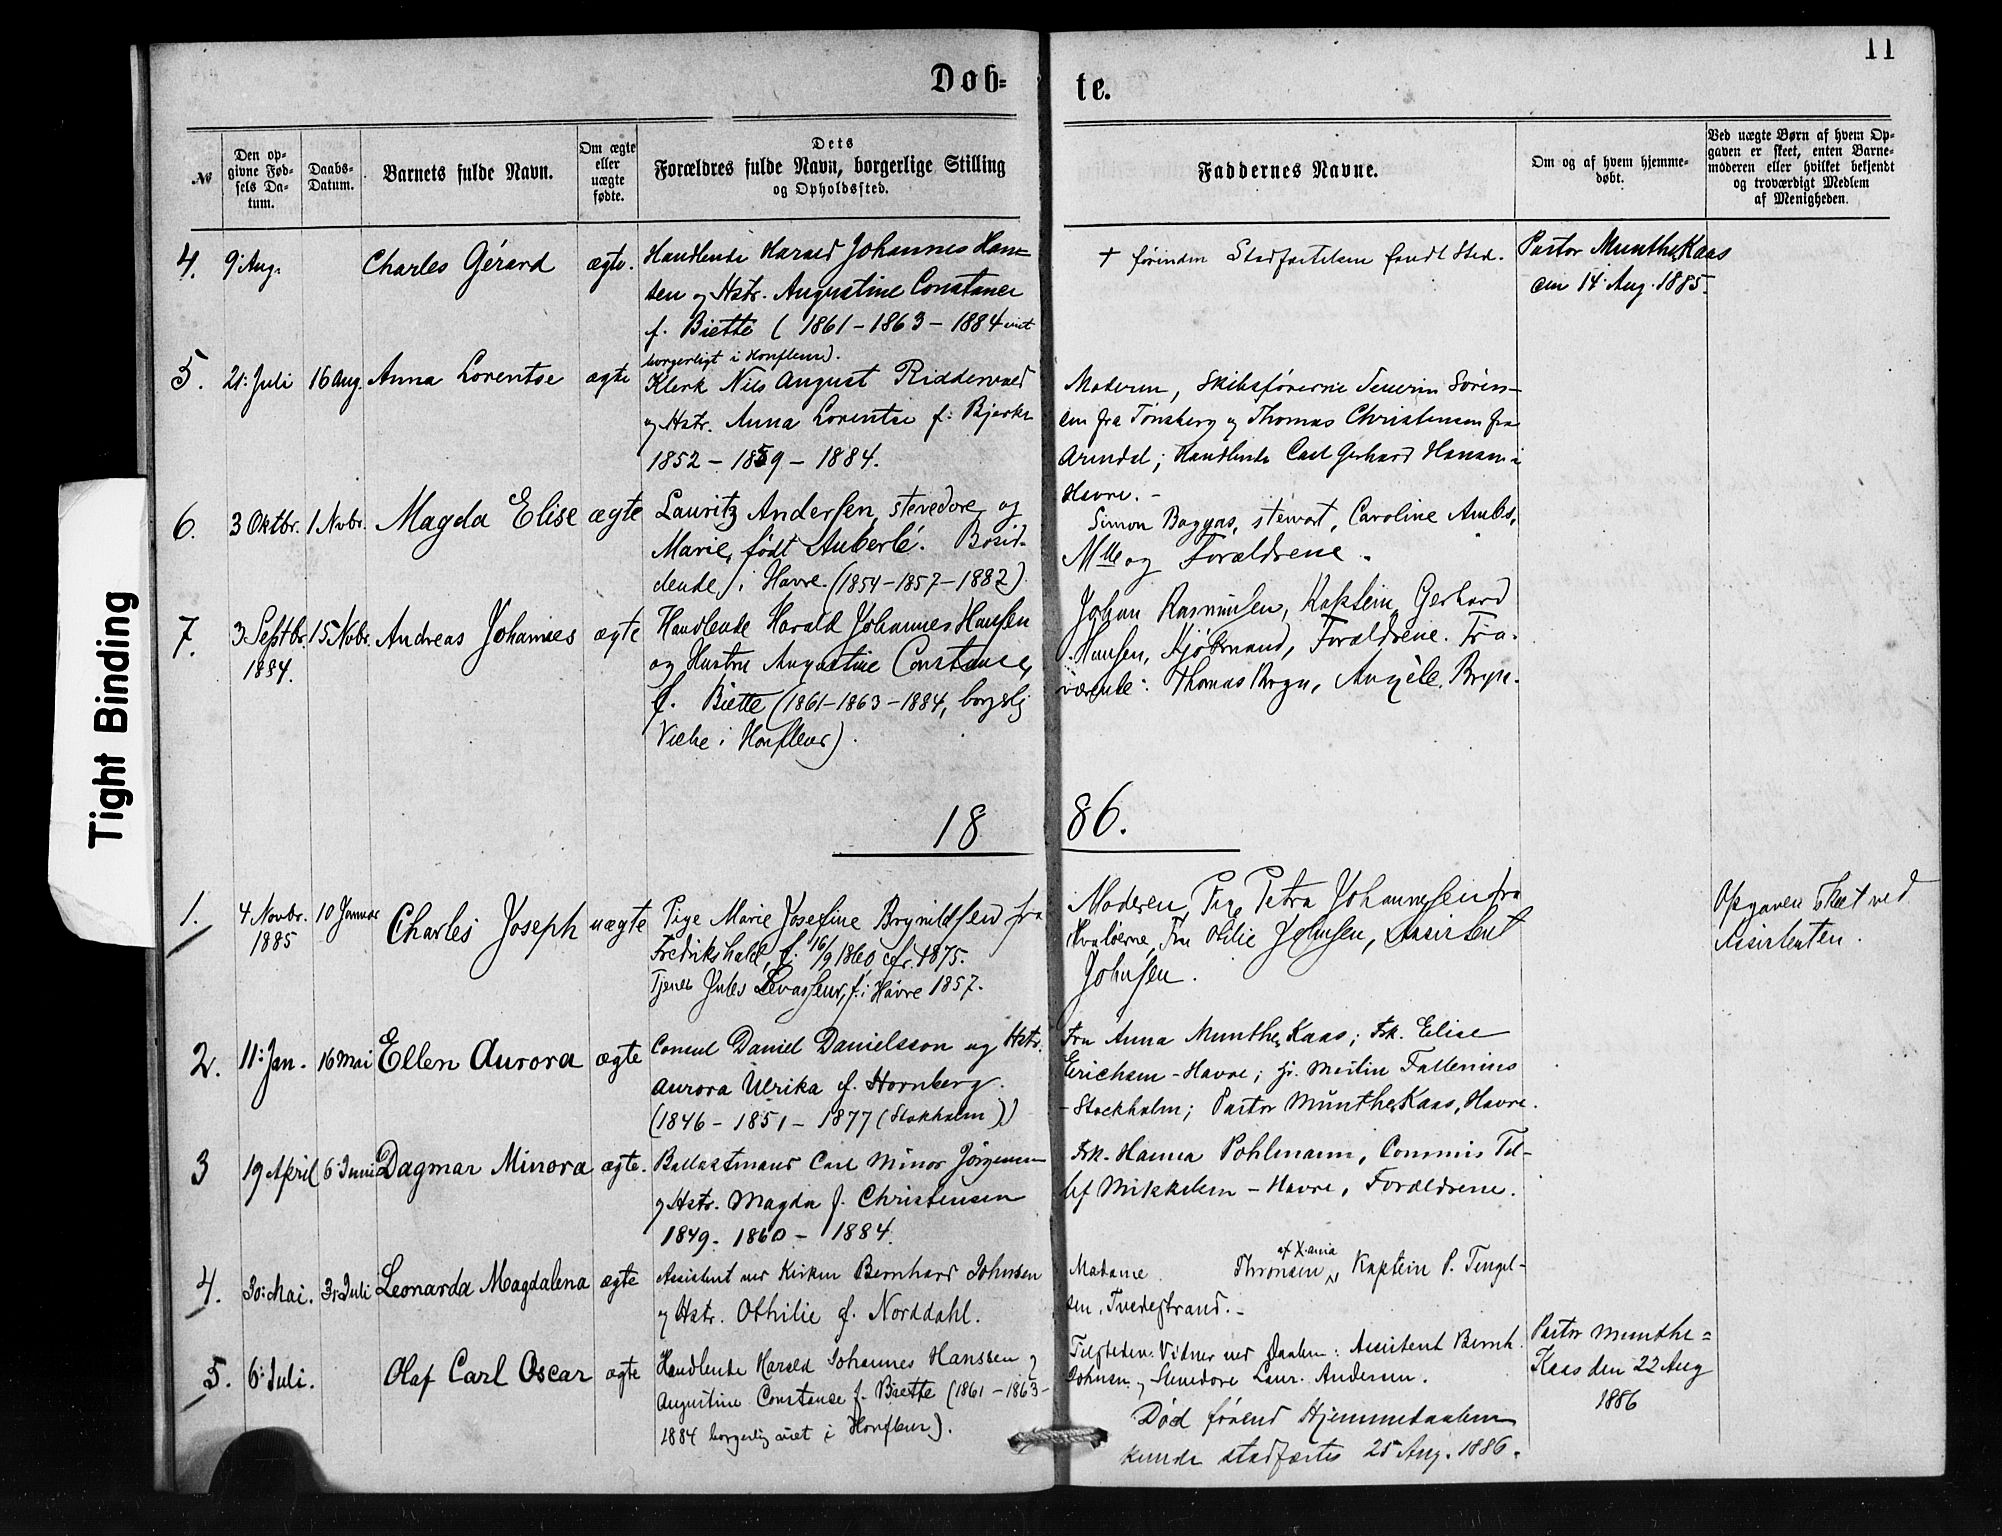 11
Døb-
te.
№
Den op-
givne Fød-
sels Da-
tum.
Daabs-
Datum.
Barnets fulde Navn.
Om ægte
eller
uægte
fødte.
Dets
Forældres fulde Navn, borgerlige Stilling
og Opholdssted.
Faddernes Navne.
Om og af hvem hjemme-
døbt.
Ved uægte Børn af hvem Op-
gaven er skeet, enten Barne-
moderen eller hvilket bekjendt
og troværdigt Medlem
af Menigheden.
4. 9 Aug. Charles Gérard ægte.
Handlende Harald Johannes Han-
sen og Hstr. Augustine Constance
f. Biette (1861-1863-1884 viet
borgerligt i Honfleur).
+ førinden Stadfæstelsen fandt Sted.
Pastor Munthe Kaas
den 14 Aug. 1885.
5. 21: Juli 16 Aug. Anna Lorentse ægte
Klerk Nils August Riddervold
og Hstr. Anna Lorentse f: Bjerke
1852 - 1859 - 1884.
Moderen, Skibsførerne Severin Sören-
sen fra Tønsberg og Thomas Christensen fra
Arendal; Handlende Carl Gerhard Hansen i
Havre. -
6. 3 Oktbr. 1 Novbr. Magda Elise ægte
Lauritz Andersen, stevedore, og
Marie, født Auberlé. Bosid-
dende i Havre. (1854-1857-1882)
Simon Bagges, stewart, Caroline
Mlle og Forældrene.
7. 3 Septbr. 15 Novbr. Andreas Johannes ægte
1884.
Handlende Harald Johannes Hansen
og Hustru Augustine Constance,
f. Biette (1861-1863-1884, borgerlig
Vielse i Honfleur).
Johan Rasmussen, Kaptein, Gerhard
Hansen, Kjøbmand, Forældrene. Fra-
værende: Thomas Bryn, Angèle Bryn.
18
86.
1. 4 Novbr. 10 Januar Charles Joseph uægte
1885
Pige Marie Josefine Brynildsen fra
Fredrikshald, f. 16/9 1860 cfr. 1875.
Tjener Jules Levasseur, f. i Hâvre 1857.
Moderen, Pige Petra Johannesen fra
Hvaløerne, Fru Otilie Johnsen, Assistent
Johnsen.
Opgaven skeet ved
Assistenten.
2. 11: Jan. 16 Mai Ellen Aurora ægte
Consul Daniel Danielsson og Hstr.
Aurora Ulrika f. Hornberg.
(1846 - 1851 - 1877 (Stokholm))
Fru Anna Munthe Kaas; Frk. Elise
Erichsen - Havre; Hr.
- Stockholm; Pastor Munthe Kaas, Havre.
3 19 April 6 Juni Dagmar Minora ægte.
Ballastmand Carl Minor Jörgensen
og Hstr. Magda f. Christensen
1849 - 1860 - 1884.
Frk. Hanna Pohlmann, Commis Tel-
lef Mikkelsen - Havre, Forældrene.
4. 30: Mai. 3: Juli Leonarda Magdalena ægte
Assistent ved Kirken Bernhard Johnsen
og Hstr. Othilie f. Norddahl.
af X.ania
Madame Thronsen, Kaptein P. Tengel-
sen, Tvedestrand. -
5. 6: Juli. Olaf Carl Oscar ægte
Handlende Harald Johannes Hanssen og
Augustine Constance f. Biette (1861 - 1863 -
1884 borgerlig viet i Honfleur).
Vidner ved Daaben: Assistent Bernh.
Johnsen og Stevedore Laur. Andersen.
Død førend Hjemmedaaben
kunde stadfæstes 25 Aug. 1886.
Pastor Munthe-
Kaas den 22 Aug
1886
Tight Binding